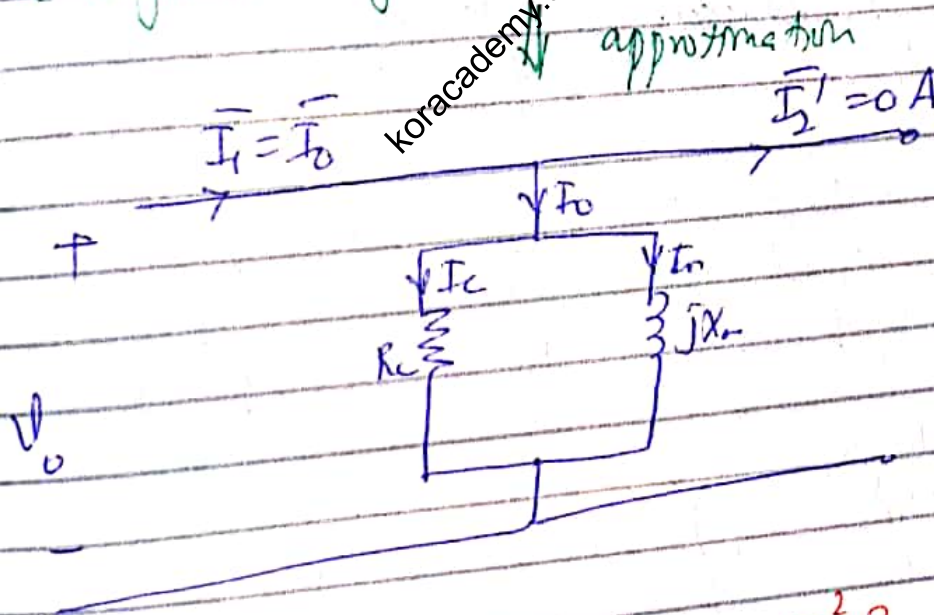 koracademy.
approximation
I̅₁ = I̅₀
I̅₂' = 0 A
+
I₀
Ic
Im
Rc
jXm
V₀
-